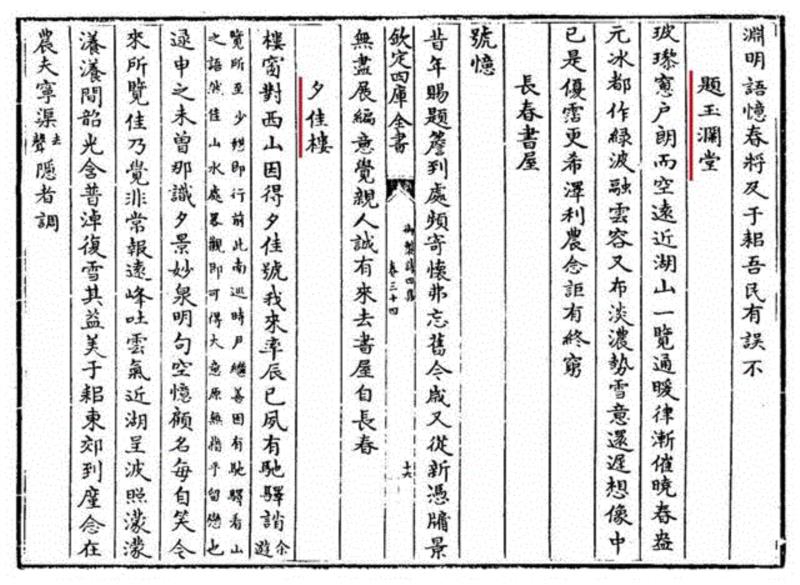 淵明語憶春將及于耜吾民有誤不
題玉瀾堂
玻瓈窻户朗而空遠近湖山一覽通暖律漸催曉春盎
元冰都作綠波融雲容又布淡濃勢雪意還遲想像中
已是優霑更希澤利農念詎有終窮
長春書屋
號憶
昔年賜題簷到處頻寄懷弗忘舊今歲又從新憑牖景
欽定四庫全書
御製詩四集
卷三十四
十六
無盡展編意覺親人誠有來去書屋自長春
夕佳樓
樓窗對西山因得夕佳號我來率辰已夙有馳驛誚余遊
覽所至少憩即行前此南廵時尹繼善因有馳驛看山
之語然佳山水處畧觀即可得大意原無指乎留戀也
逯申之未曾那識夕景妙泉明句空憶顧名每自笑今
來所覽佳乃覺非常報遠峰吐雲氣近湖呈波照濛濛
瀁瀁間韶光含普淖復雪其益美于耜東郊到廑念在
農夫寧渠去聲隱者調